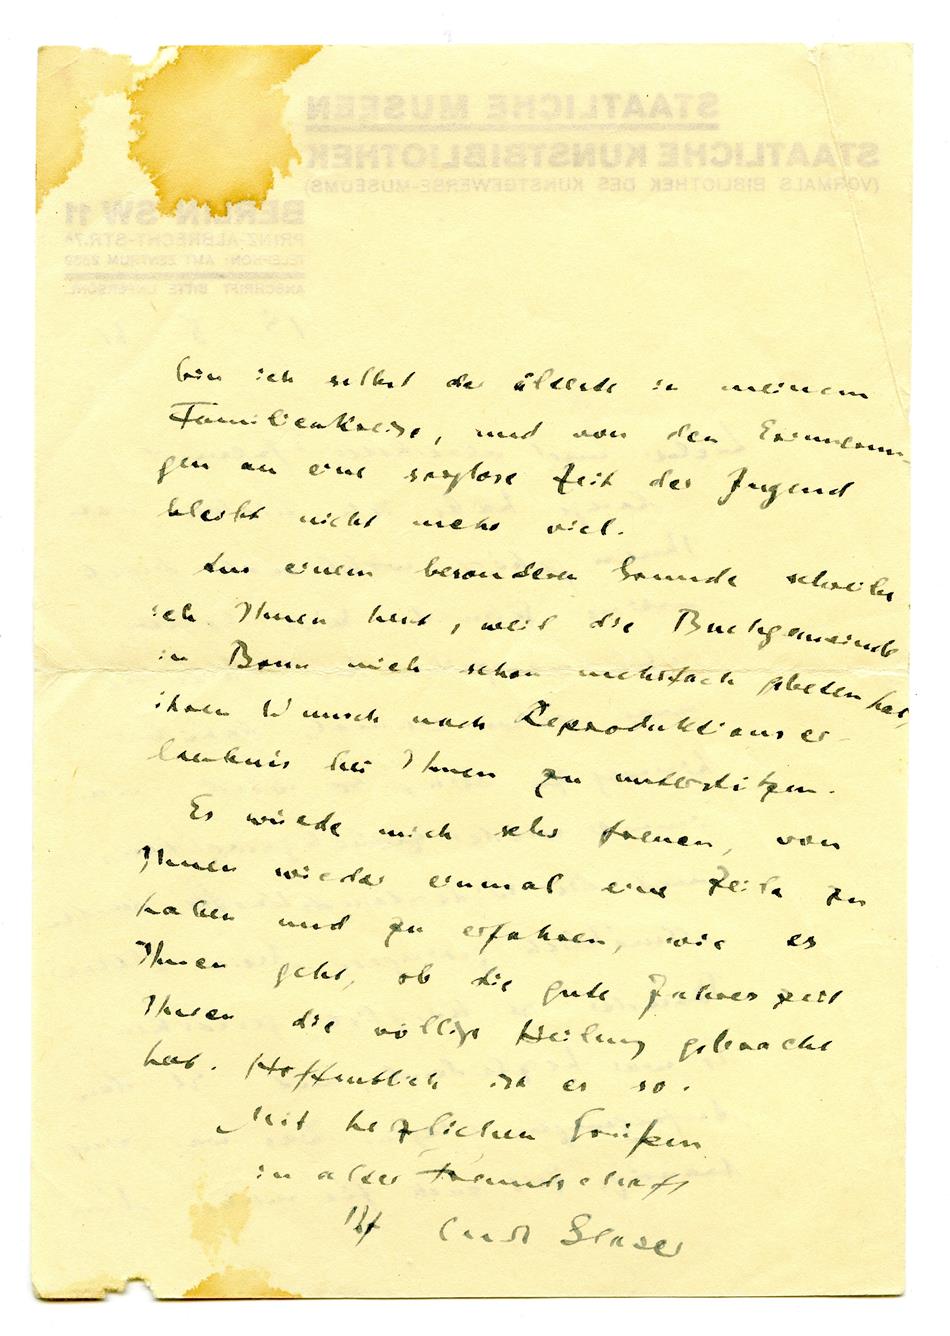 STAATLICHE MUSEEN
STAATLICHE KUNSTBIBLIOTHEK
(VORMALS BIBLIOTHEK DES KUNSTGEWERBE-MUSEUMS)
BERLIN SW 11
PRINZ-ALBRECHT-STR. 7A
TELEPHON: AMT ZENTRUM
ANSCHRIFT BITTE UNPERSÖNL.
bin ich selbst der älteste in meinem
Familienkreise, und von den Erinnerun-
gen an eine sorglose Zeit der Jugend
bleibt nicht mehr viel.
Aus einem besonderen Grunde schreibe
ich Ihnen heut, weil die Buchgemeinde
in Bonn mich schon mehrfach gebeten hat,
ihren Wunsch nach Reproduktionser-
laubnis bei Ihnen zu unterstützen.
Es würde mich sehr freuen, von
Ihnen wieder einmal eine Zeile zu
haben und zu erfahren, wie es
Ihnen geht, ob die gute Jahreszeit
Ihnen die völlige Heilung gebracht
hat. Hoffentlich ist es so.
Mit herzlichen Grüßen
in alter Freundschaft
Ihr Curt Glaser